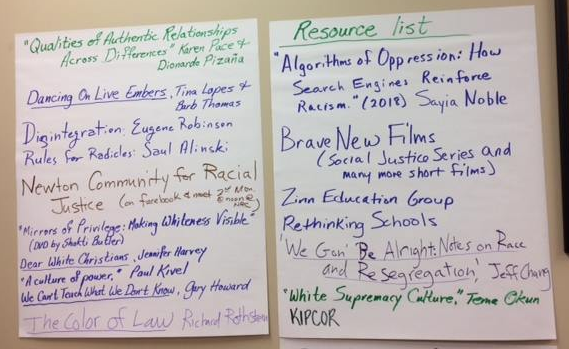 "Qualities of Authentic Relationships
Across Differences" Karen Pace &
Dionardo Pizaña
Dancing On Live Embers, Tina Lopes &
Barb Thomas
Disintegration: Eugene Robinson
Rules for Radicles: Saul Alinski
Newton Community for Racial
Justice (on facebook & meet 2nd Mon.
@ noon @
"Mirrors of Privilege: Making Whiteness Visible"
(DVD by Shakti Butler)
Dear White Christians, Jennifer Harvey
"A culture of power," Paul Kivel
We Can't Teach What We Don't Know, Gary Howard
The Color of Law Richard Rothstein
Resource list
"Algorithms of Oppression: How
Search Engines Reinforce
Racism." (2018) Sayia Noble
Brave New Films
(Social Justice Series and
many more short films)
Zinn Education Group
Rethinking Schools
'We Gon' Be Alright: Notes on Race
and Resegregation', Jeff Chang
"White Supremacy Culture," Tema Okun
KIPCOR